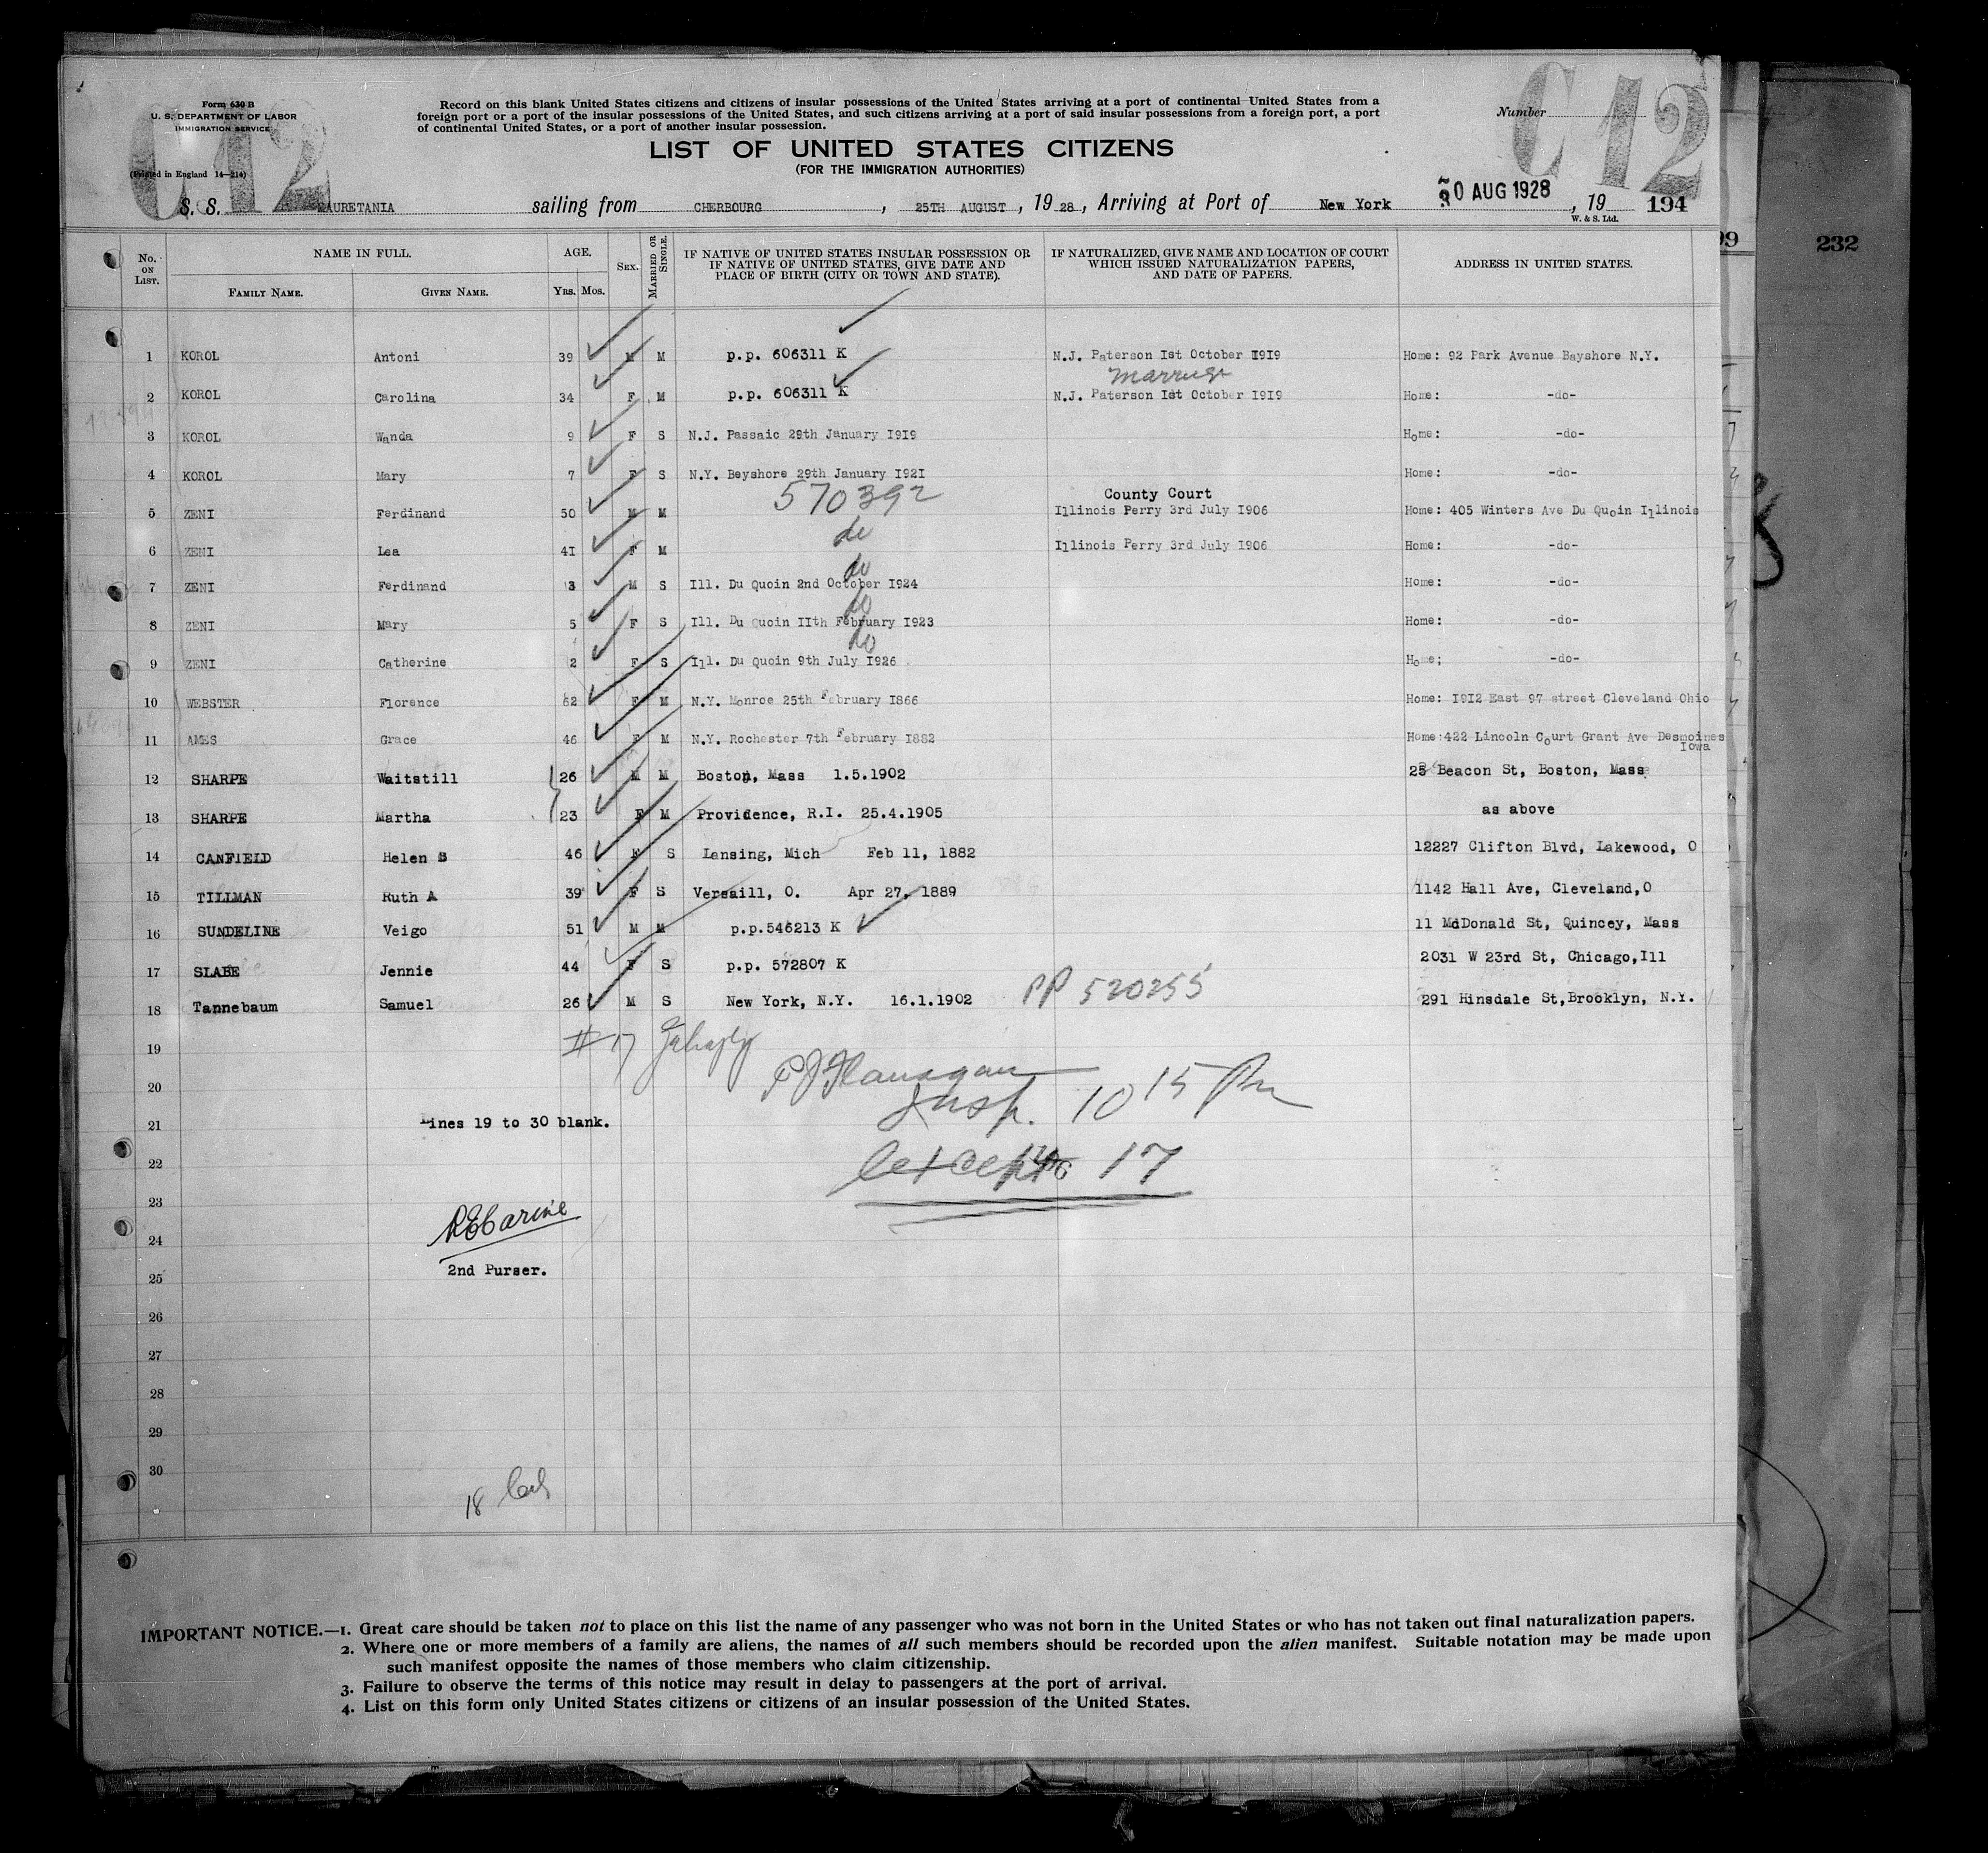 Form 630 B
U. S. DEPARTMENT OF LABOR
IMMIGRATION SERVICE
(Printed in England 14—214)
C 12
Record on this blank United States citizens and citizens of insular possessions of the United States arriving at a port of continental United States from a
foreign port or a port of the insular possessions of the United States, and such citizens arriving at a port of said insular possessions from a foreign port, a port
of continental United States, or a port of another insular possession.
Number
C 12
LIST OF UNITED STATES CITIZENS
(FOR THE IMMIGRATION AUTHORITIES)
S. S. MAURETANIA sailing from CHERBOURG, 25TH AUGUST, 19 28, Arriving at Port of New York 30 AUG 1928, 19
W. & S. Ltd.
194
99
232
No. ON LIST. NAME IN FULL. FAMILY NAME. GIVEN NAME. AGE. YRS. MOS. SEX. MARRIED OR SINGLE. IF NATIVE OF UNITED STATES INSULAR POSSESSION OR IF NATIVE OF UNITED STATES, GIVE DATE AND PLACE OF BIRTH (CITY OR TOWN AND STATE). IF NATURALIZED, GIVE NAME AND LOCATION OF COURT WHICH ISSUED NATURALIZATION PAPERS, AND DATE OF PAPERS. ADDRESS IN UNITED STATES.
1 KOROL Antoni 39 M M p.p. 606311 K N.J. Paterson Ist October I9I9 Home: 92 Park Avenue Bayshore N.Y.
marriage
2 KOROL Carolina 34 F M p.p. 606311 K N.J. Paterson Ist October I9I9 Home: -do-
3 KOROL Wanda 9 F S N.J. Passaic 29th January I9I9 Home: -do-
4 KOROL Mary 7 F S N.Y. Beyshore 29th January I92I Home: -do-
570392 County Court
5 ZENI Ferdinand 50 M M Illinois Perry 3rd July I906 Home: 405 Winters Ave Du Quoin Illinois
6 ZENI Lea 4I F M do Illinois Perry 3rd July I906 Home: -do-
do
7 ZENI Ferdinand 3 M S Ill. Du Quoin 2nd October I924 Home: -do-
do
8 ZENI Mary 5 F S Ill. Du Quoin IIth February I923 Home: -do-
do
9 ZENI Catherine 2 F S Ill. Du Quoin 9th July I926 Home; -do-
10 WEBSTER Florence 62 F M N.Y. Monroe 25th February I866 Home: I9I2 East 97 street Cleveland Ohio
11 AMES Grace 46 F M N.Y. Rochester 7th February I882 Home:422 Lincoln Court Grant Ave Desmoines
Iowa
12 SHARPE Waitstill 26 M M Boston, Mass 1.5.1902 25 Beacon St, Boston, Mass
13 SHARPE Martha 23 F M Providence, R.I. 25.4.1905 as above
14 CANFIELD Helen B 46 F S Lansing, Mich Feb 11, 1882 12227 Clifton Blvd, Lakewood, O
15 TILLMAN Ruth A 39 F S Versaill, O. Apr 27, 1889 1142 Hall Ave, Cleveland,O
16 SUNDELINE Veigo 51 M M p.p.546213 K 11 McDonald St, Quincey, Mass
17 SLABE Jennie 44 F S p.p. 572807 K 2031 W 23rd St, Chicago,Ill
18 Tannebaum Samuel 26 M S New York, N.Y. 16.1.1902 PP 520255 291 Hinsdale St,Brooklyn, N.Y.
19 #17
20 PJ Flanagan
Insp. 10 15 Pm
21 Lines 19 to 30 blank.
22 Except 17
23
24 RECarine
25 2nd Purser.
26
27
28
29
30
18
IMPORTANT NOTICE.—1. Great care should be taken not to place on this list the name of any passenger who was not born in the United States or who has not taken out final naturalization papers.
2. Where one or more members of a family are aliens, the names of all such members should be recorded upon the alien manifest. Suitable notation may be made upon
such manifest opposite the names of those members who claim citizenship.
3. Failure to observe the terms of this notice may result in delay to passengers at the port of arrival.
4. List on this form only United States citizens or citizens of an insular possession of the United States.